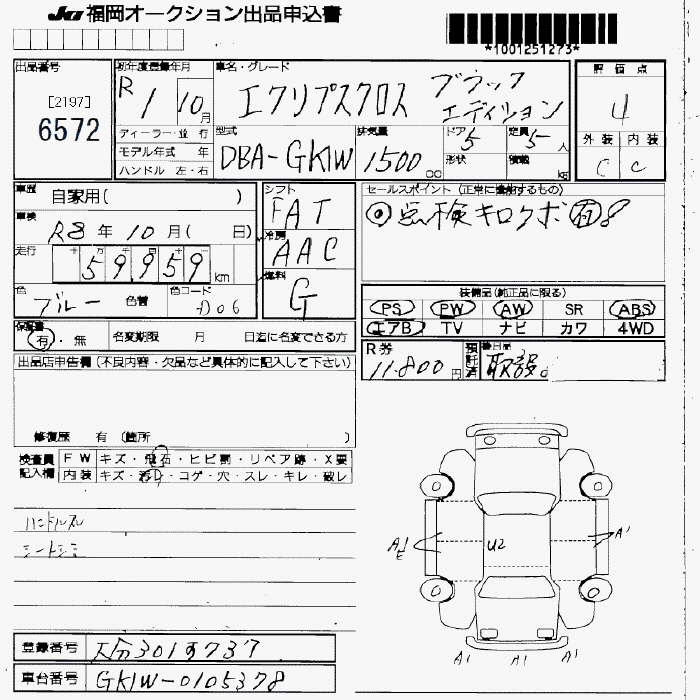 JU 福岡オークション出品申込書
*1001251273*
出品番号
[2197]
6572
初年度登録年月
R1 10月
車名・グレード
エクリプスクロス ブラックエディション
評価点
4
外装 内装
C C
ディーラー・並行
モデル年式 年
ハンドル 左・右
型式
DBA-GK1W
排気量
1500 cc
ドア
5
形状
定員
5人
積載
kg
車歴
自家用( )
車検
R8年10月( 日)
走行
十 万 千
59959km
色
ブルー
色替
色コード
D06
シフト
FAT
冷房
AAC
燃料
G
セールスポイント (正常に機能するもの)
◎点検キロクボ有8
装備品(純正品に限る)
PS PW AW SR ABS
エアB TV ナビ カワ 4WD
保証書
有・無
名変期限 月 日迄に名変できる方
R券
11.800円
預託済
後日品
取説。
出品店申告欄(不良内容・欠品など具体的に記入して下さい)
修復歴 有 (箇所 )
検査員記入欄
FW キズ・飛石・ヒビ割・リペア跡・X要
内装 キズ・汚れ・コゲ・穴・スレ・キレ・破レ
ハンドルスレ
シートシミ
A1
E
U2
A1
A1 A1 A1
登録番号
大分301す737
車台番号
GK1W-0105378